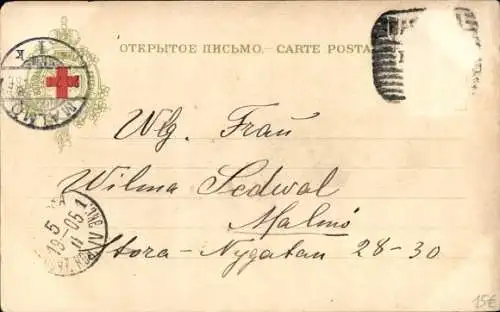 ОТКРЫТОЕ ПИСЬМО. — CARTE POSTA
MALMÖ
Wlg. Frau
Wilma Sedwal
Malmö
Stora-Nygatan 28-30
5
19-05
11
15€